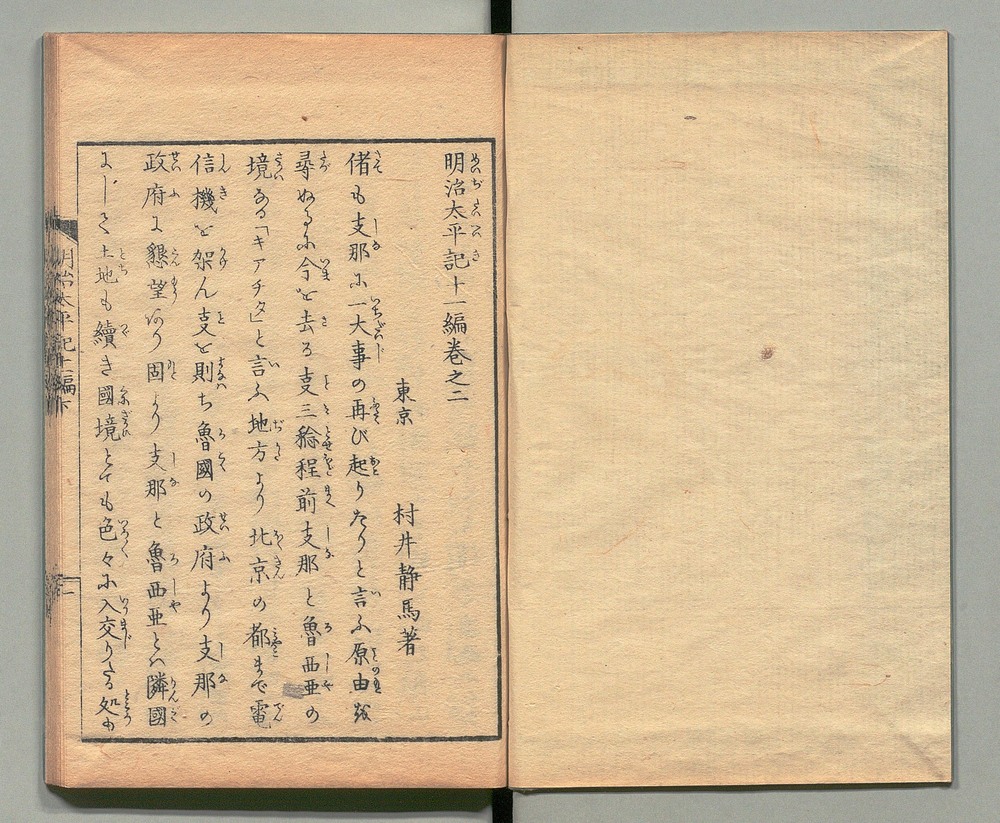 明治太平記十一編巻之二
東京 村井静馬著
偖も支那に一大事の再び起りたりと言ふ原由を
尋ぬるに今を去る支三稔程前支那と魯西亜の
境ある「キアチタ」と言ふ地方より北京の都まで電
信機を架ん支を則ち魯國の政府より支那の
政府に懇望あり固より支那と魯西亜とハ隣國
にして土地も續き國境とても色々に入交りたる処も
明治太平記十一編下
一